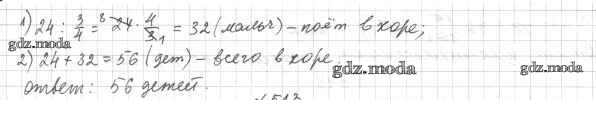 1) 24 : 3/4 = ⁸24 · 4/3₁ = 32 (мальч) – поёт в хоре;
gdz.moda
2) 24 + 32 = 56 (дет) – всего в хоре.
gdz.moda
gdz.moda
ответ: 56 детей.